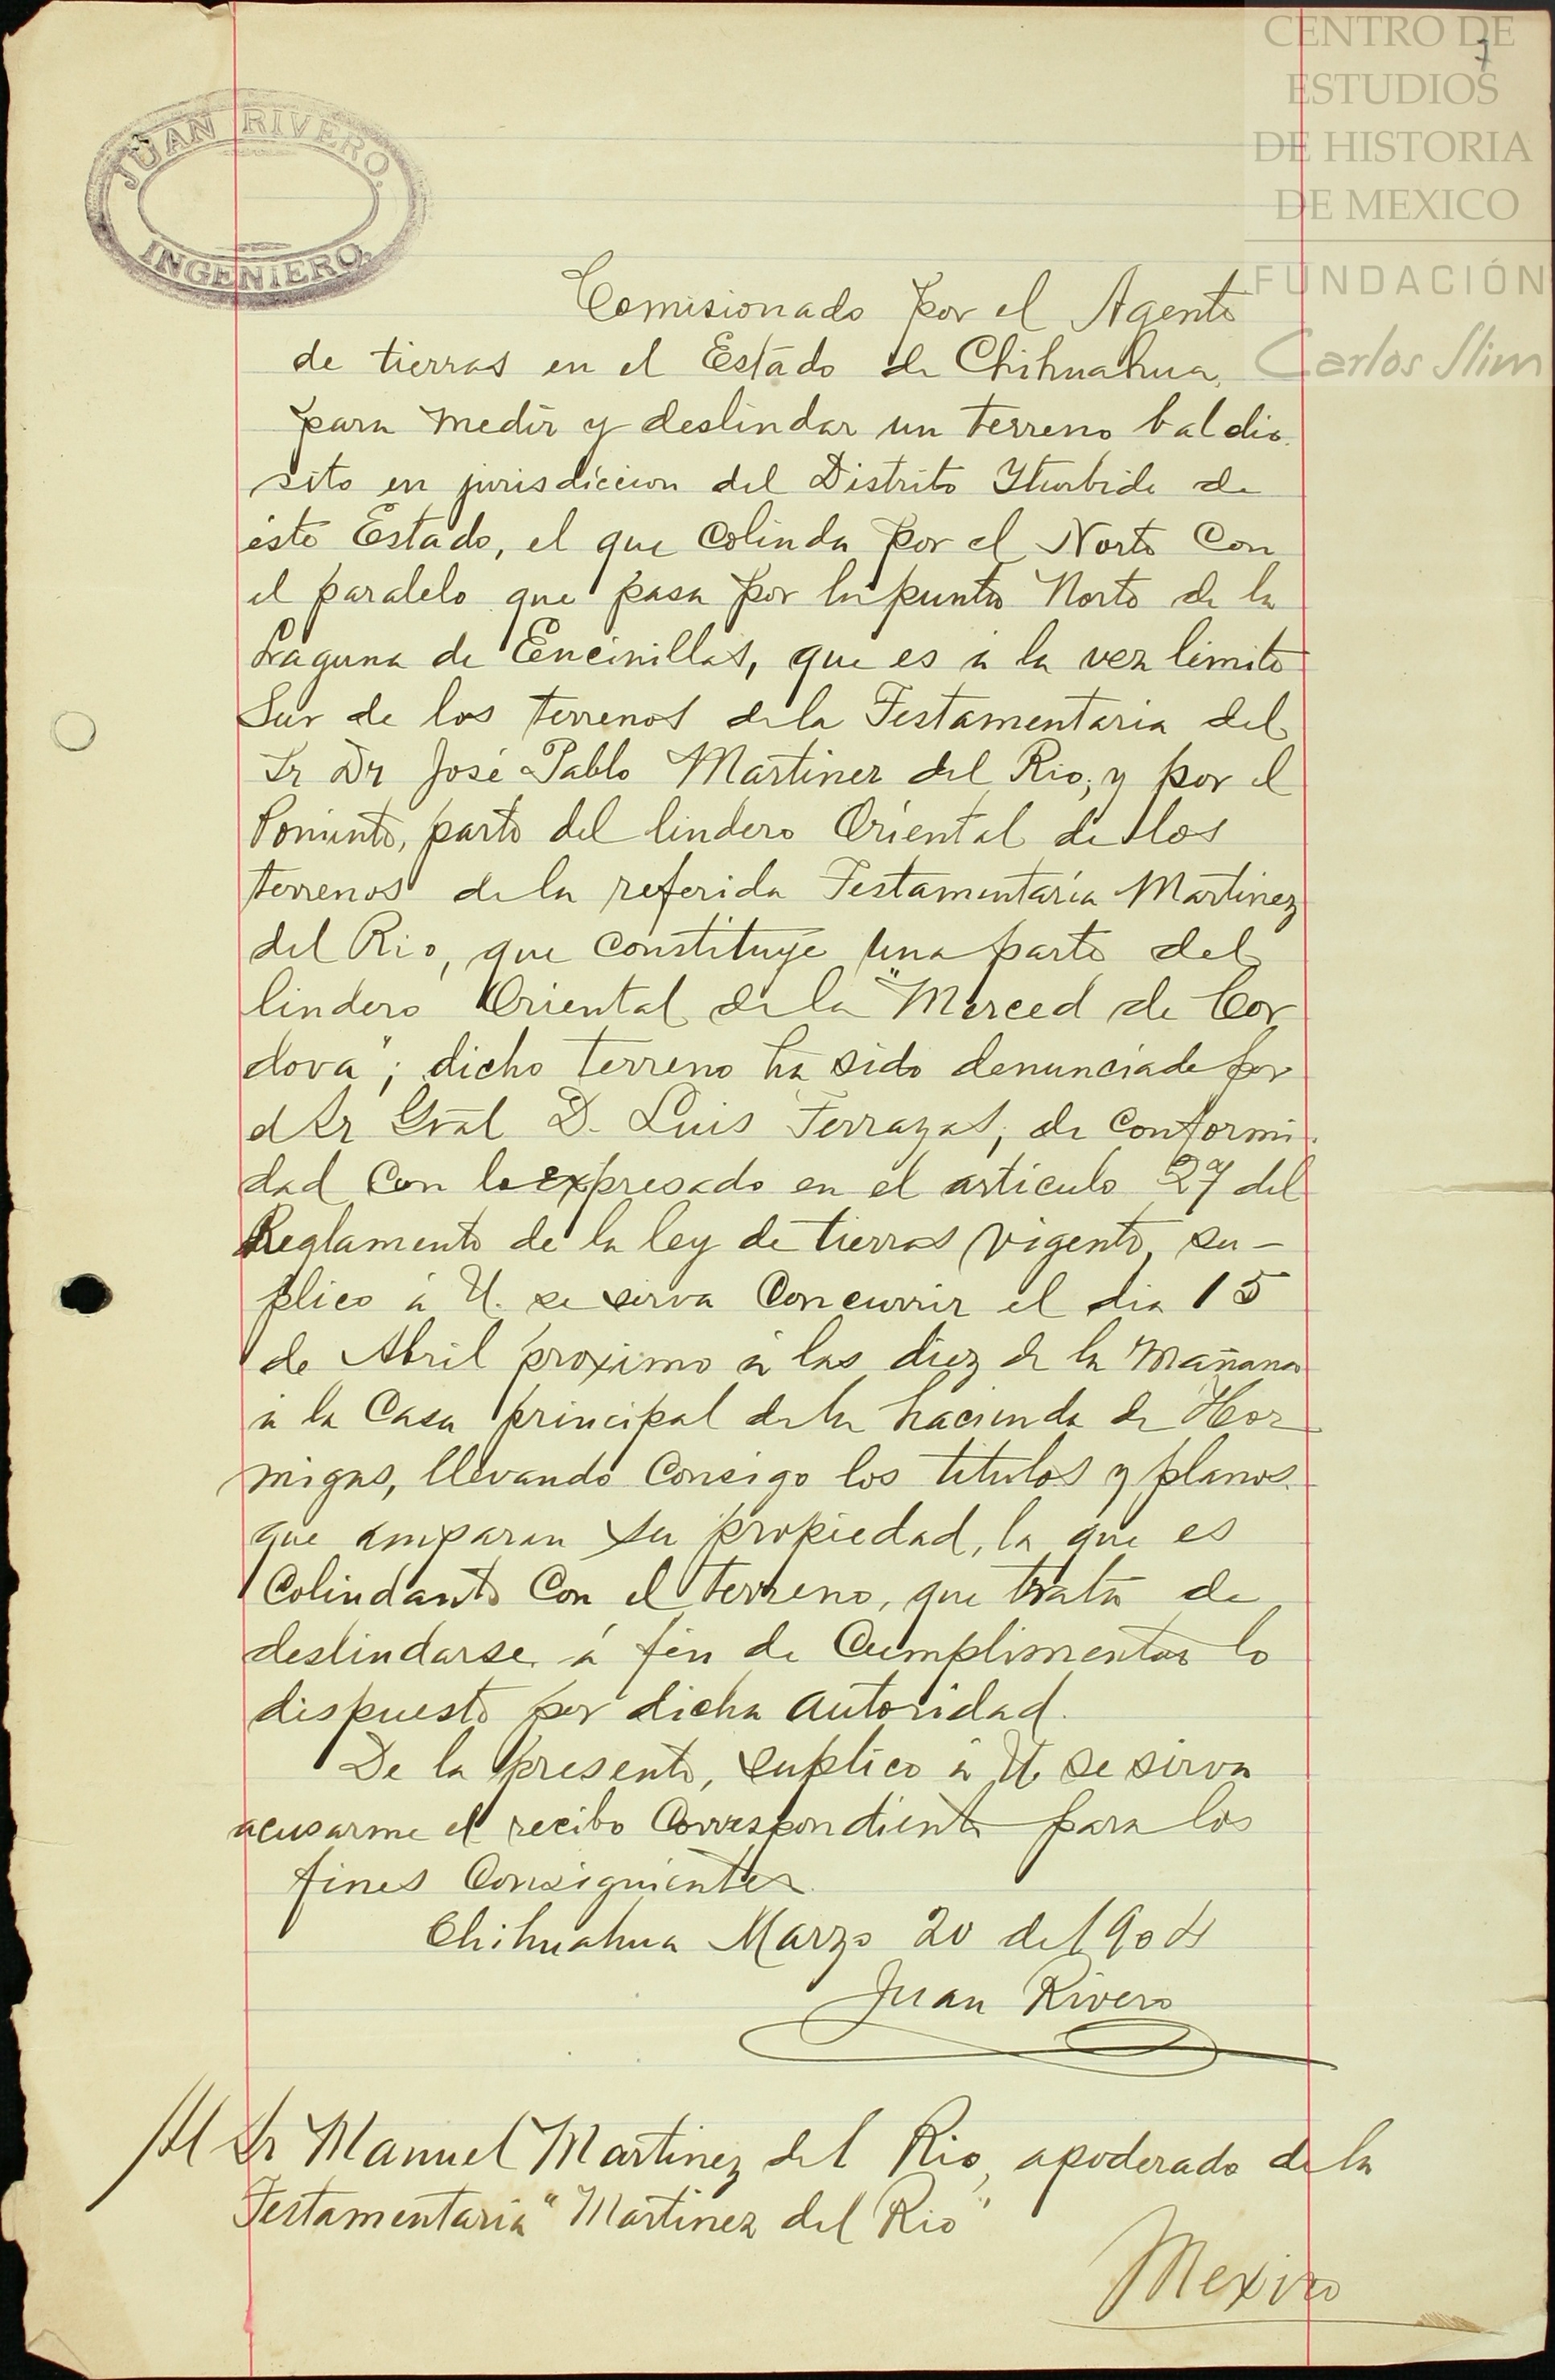 7
CENTRO DE
ESTUDIOS
DE HISTORIA
DE MEXICO
FUNDACIÓN
Carlos Slim
JUAN RIVERO.
INGENIERO.
Comisionado por el Agente
de tierras en el Estado de Chihuahua,
para medir y deslindar un terreno baldio
sito en jurisdiccion del Distrito Yturbide de
éste Estado, el que colinda por el Norte con
el paralelo que pasa por la punta Norte de la
Laguna de Encinillas, que es á la vez limite
Sur de los terrenos de la Testamentaria del
Sr Dr José Pablo Martinez del Rio; y por el
Poniente, parte del lindero Oriental de los
terrenos de la referida Testamentaría Martinez
del Rio, que constituye una parte del
lindero Oriental de la "Merced de Cor
dova"; dicho terreno ha sido denunciado por
el Sr Gral D. Luis Terrazas; de conformi
dad con lo expresado en el articulo 27 del
Reglamento de la ley de tierras vigente, su-
plico á U. se sirva concurrir el dia 15
de Abril proximo á las diez de la mañana
á la Casa principal de la hacienda de Hor
migas, llevando consigo los titulos y planos
que amparan su propiedad, la que es
colindante con el terreno, que trata de
deslindarse á fin de cumplimentar lo
dispuesto por dicha autoridad.
De la presente, suplico á U. se sirva
acusarme el recibo correspondiente para los
fines consiguientes.
Chihuahua Marzo 20 de 1904
Juan Rivero
Al Sr Manuel Martinez del Rio, apoderado de la
Testamentaria "Martinez del Rio"
Mexico